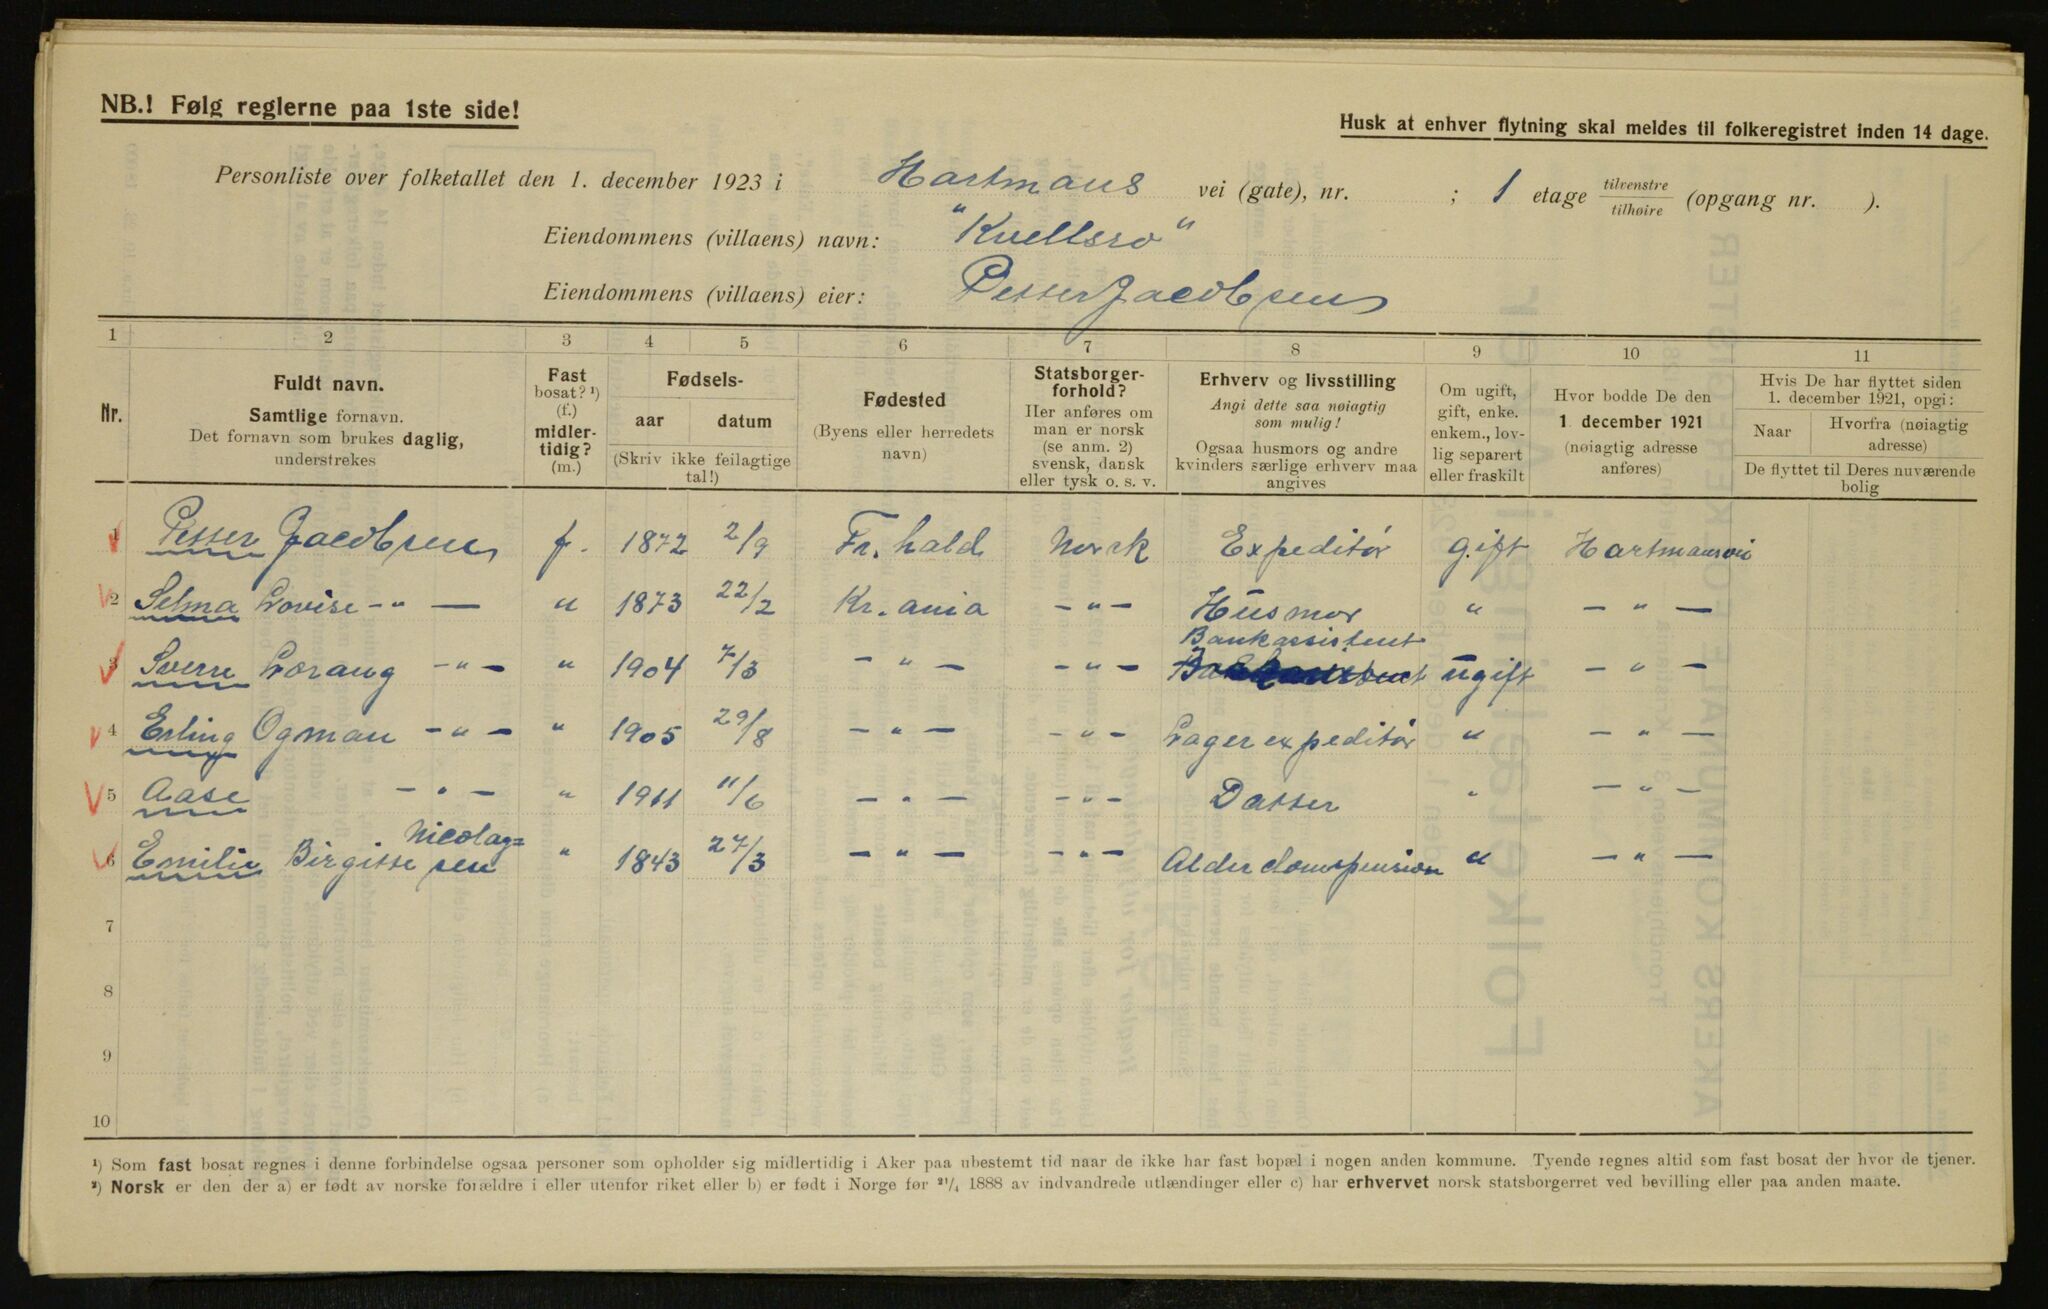 NB.! Følg reglerne paa 1ste side!
Husk at enhver flytning skal meldes til folkeregistret inden 14 dage.
Personliste over folketallet den 1. december 1923 i Hartmans vei (gate), nr. ; 1 etage tilvenstre tilhøire (opgang nr. ).
Eiendommens (villaens) navn: "Kvellsro"
Eiendommens (villaens) eier: Petter Jacobsen
1 2 3 4 5 6 7 8 9 10 11
Nr.
Fuldt navn.
Samtlige fornavn.
Det fornavn som brukes daglig,
understrekes
Fast
bosat? ¹)
(f.)
midler-
tidig?
(m.)
Fødsels-
aar datum
(Skriv ikke feilagtige
tal!)
Fødested
(Byens eller herredets
navn)
Statsborger-
forhold?
Her anføres om
man er norsk
(se anm. 2)
svensk, dansk
eller tysk o. s. v.
Erhverv og livsstilling
Angi dette saa nøiagtig
som mulig!
Ogsaa husmors og andre
kvinders særlige erhverv maa
angives
Om ugift,
gift, enke.
enkem., lov-
lig separert
eller fraskilt
Hvor bodde De den
1. december 1921
(nøiagtig adresse
anføres)
Hvis De har flyttet siden
1. december 1921, opgi:
Naar
Hvorfra (nøiagtig
adresse)
De flyttet til Deres nuværende
bolig
1 Petter Jacobsen f. 1872 2/9 Fr. hald Norsk Expeditør gift Hartmansvei
2 Selma Lovise -"- — " 1873 22/2 Kr. ania -"- Husmor " — " —
Bankassistent
3 Sverre Lorang -"- " 1904 7/3 - " - -"- ugift — " —
4 Erling Ogman -"- " 1905 29/8 - " - -"- Lagerexpeditør " — " —
5 Aase -"- " 1911 11/6 - " - -"- Datter " — " —
Nicolay=
6 Emilie Birgitte sen " 1843 27/3 - " - -"- Alderdomspension " — " —
7
8
9
10
¹) Som fast bosat regnes i denne forbindelse ogsaa personer som opholder sig midlertidig i Aker paa ubestemt tid naar de ikke har fast bopæl i nogen anden kommune. Tyende regnes altid som fast bosat der hvor de tjener.
²) Norsk er den der a) er født av norske forældre i eller utenfor riket eller b) er født i Norge før ²¹/₄ 1888 av indvandrede utlændinger eller c) har erhvervet norsk statsborgerret ved bevilling eller paa anden maate.